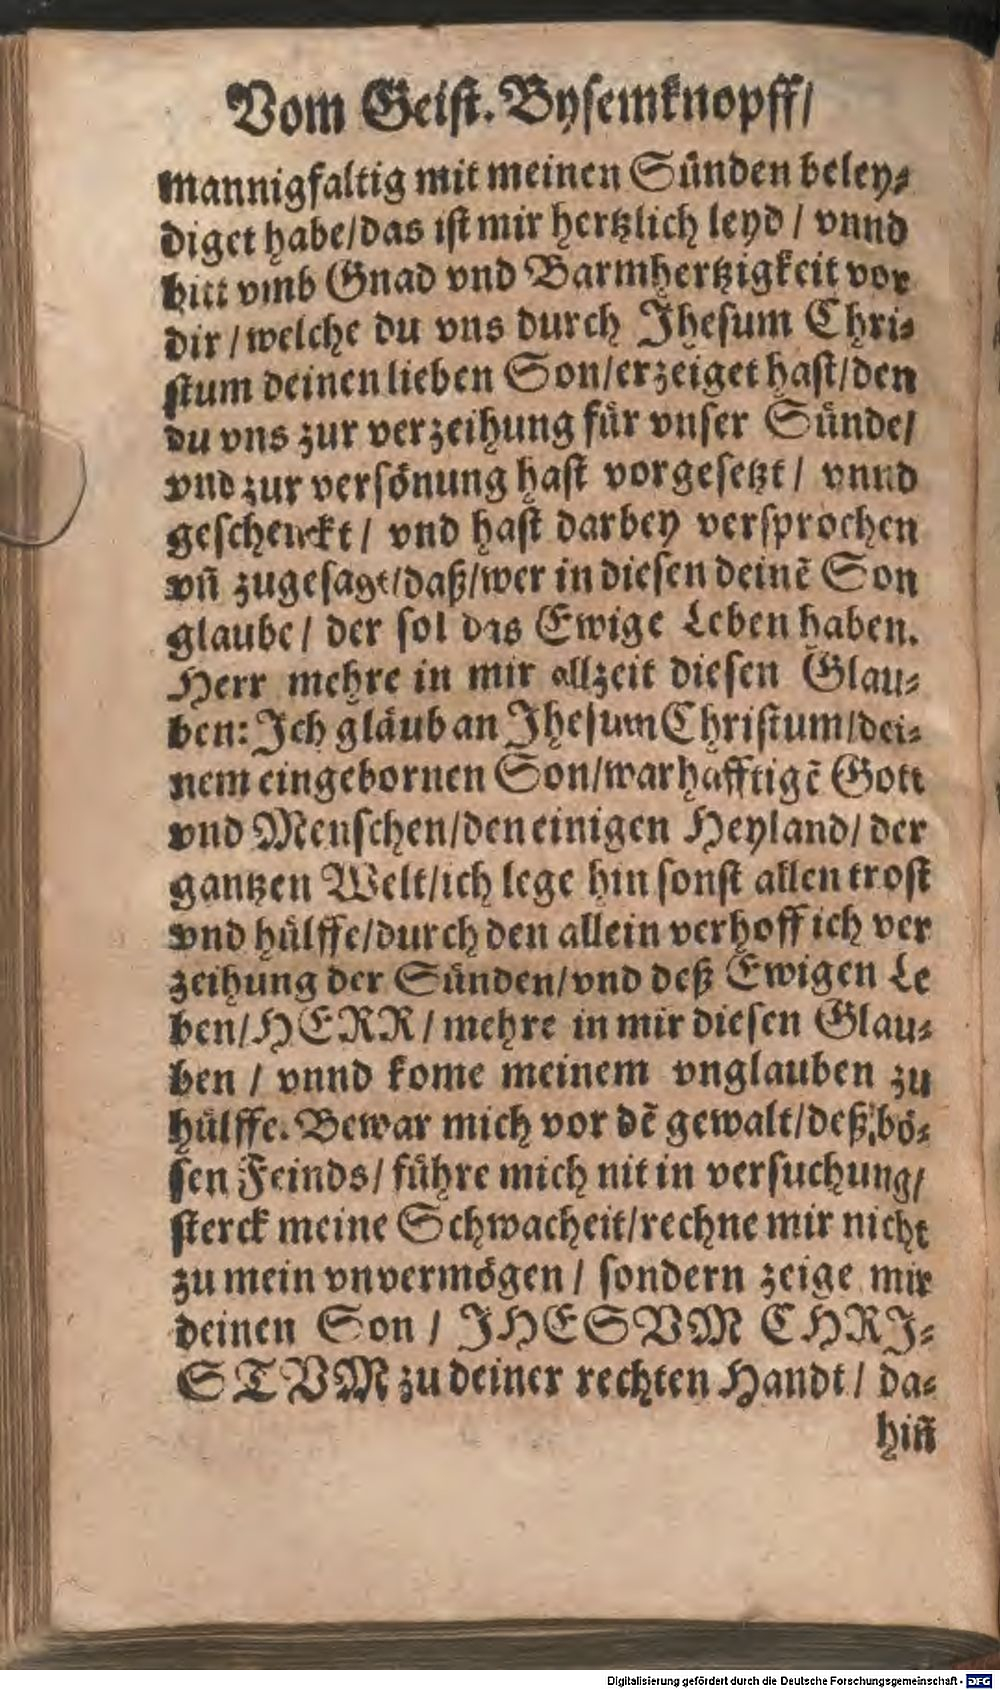 Vom Geist. Bysemknopff/
mannigfaltig mit meinen Sünden beley-
diget habe/das ist mir hertzlich leyd / vnnd
bitt vmb Gnad vnd Barmhertzigkeit vor
dir / welche du vns durch Jhesum Chri-
stum deinen lieben Son/erzeiget hast/den
du vns zur verzeihung für vnser Sünde/
vnd zur versönung hast vorgesetzt / vnnd
geschenckt / vnd hast darbey versprochen
vñ zugesagt/daß/wer in diesen deinẽ Son
glaube / der sol das Ewige Leben haben.
Herr mehre in mir allzeit diesen Glau-
ben: Ich gläub an Jhesum Christum/dei-
nem eingebornen Son/warhafftigẽ Gott
vnd Menschen/den einigen Heyland/ der
gantzen Welt/ich lege hin sonst allen trost
vnd hülffe/durch den allein verhoff ich ver
zeihung der Sünden/vnd deß Ewigen Le
ben/HERR / mehre in mir diesen Glau-
ben / vnnd kome meinem vnglauben zu
hülffe. Bewar mich vor dẽ gewalt/deß bö-
sen Feinds/ führe mich nit in versuchung/
sterck meine Schwacheit/rechne mir nicht
zu mein vnvermögen / sondern zeige mir
deinen Son / JHESVM CHRJ-
STVM zu deiner rechten Handt / da-
hiñ
Digitalisierung gefördert durch die Deutsche Forschungsgemeinschaft - DFG